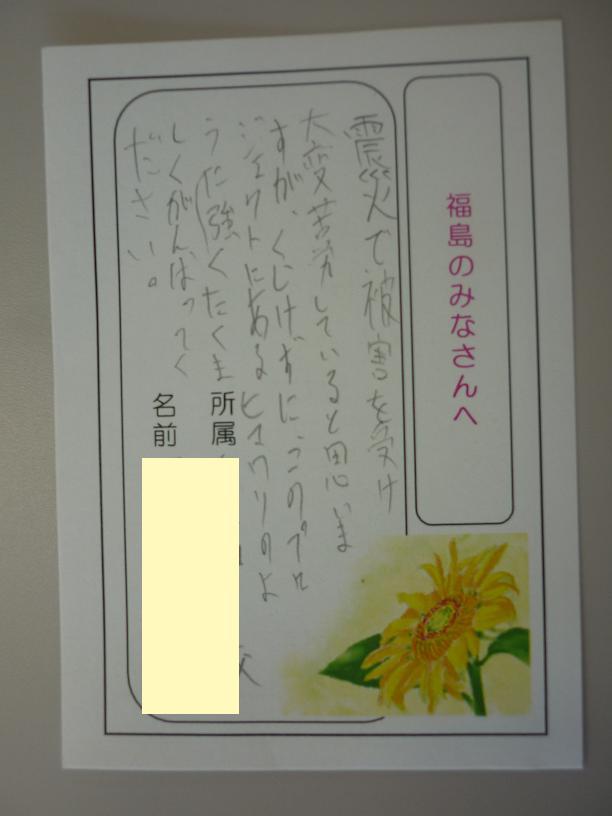 福島のみなさんへ
震災で被害を受け
大変苦労していると思いま
すが、くじけずに、このプロ
ジェクトにあるヒマワリのよ
うに強くたくま
しくがんばってく
ださい。
所属
校
名前